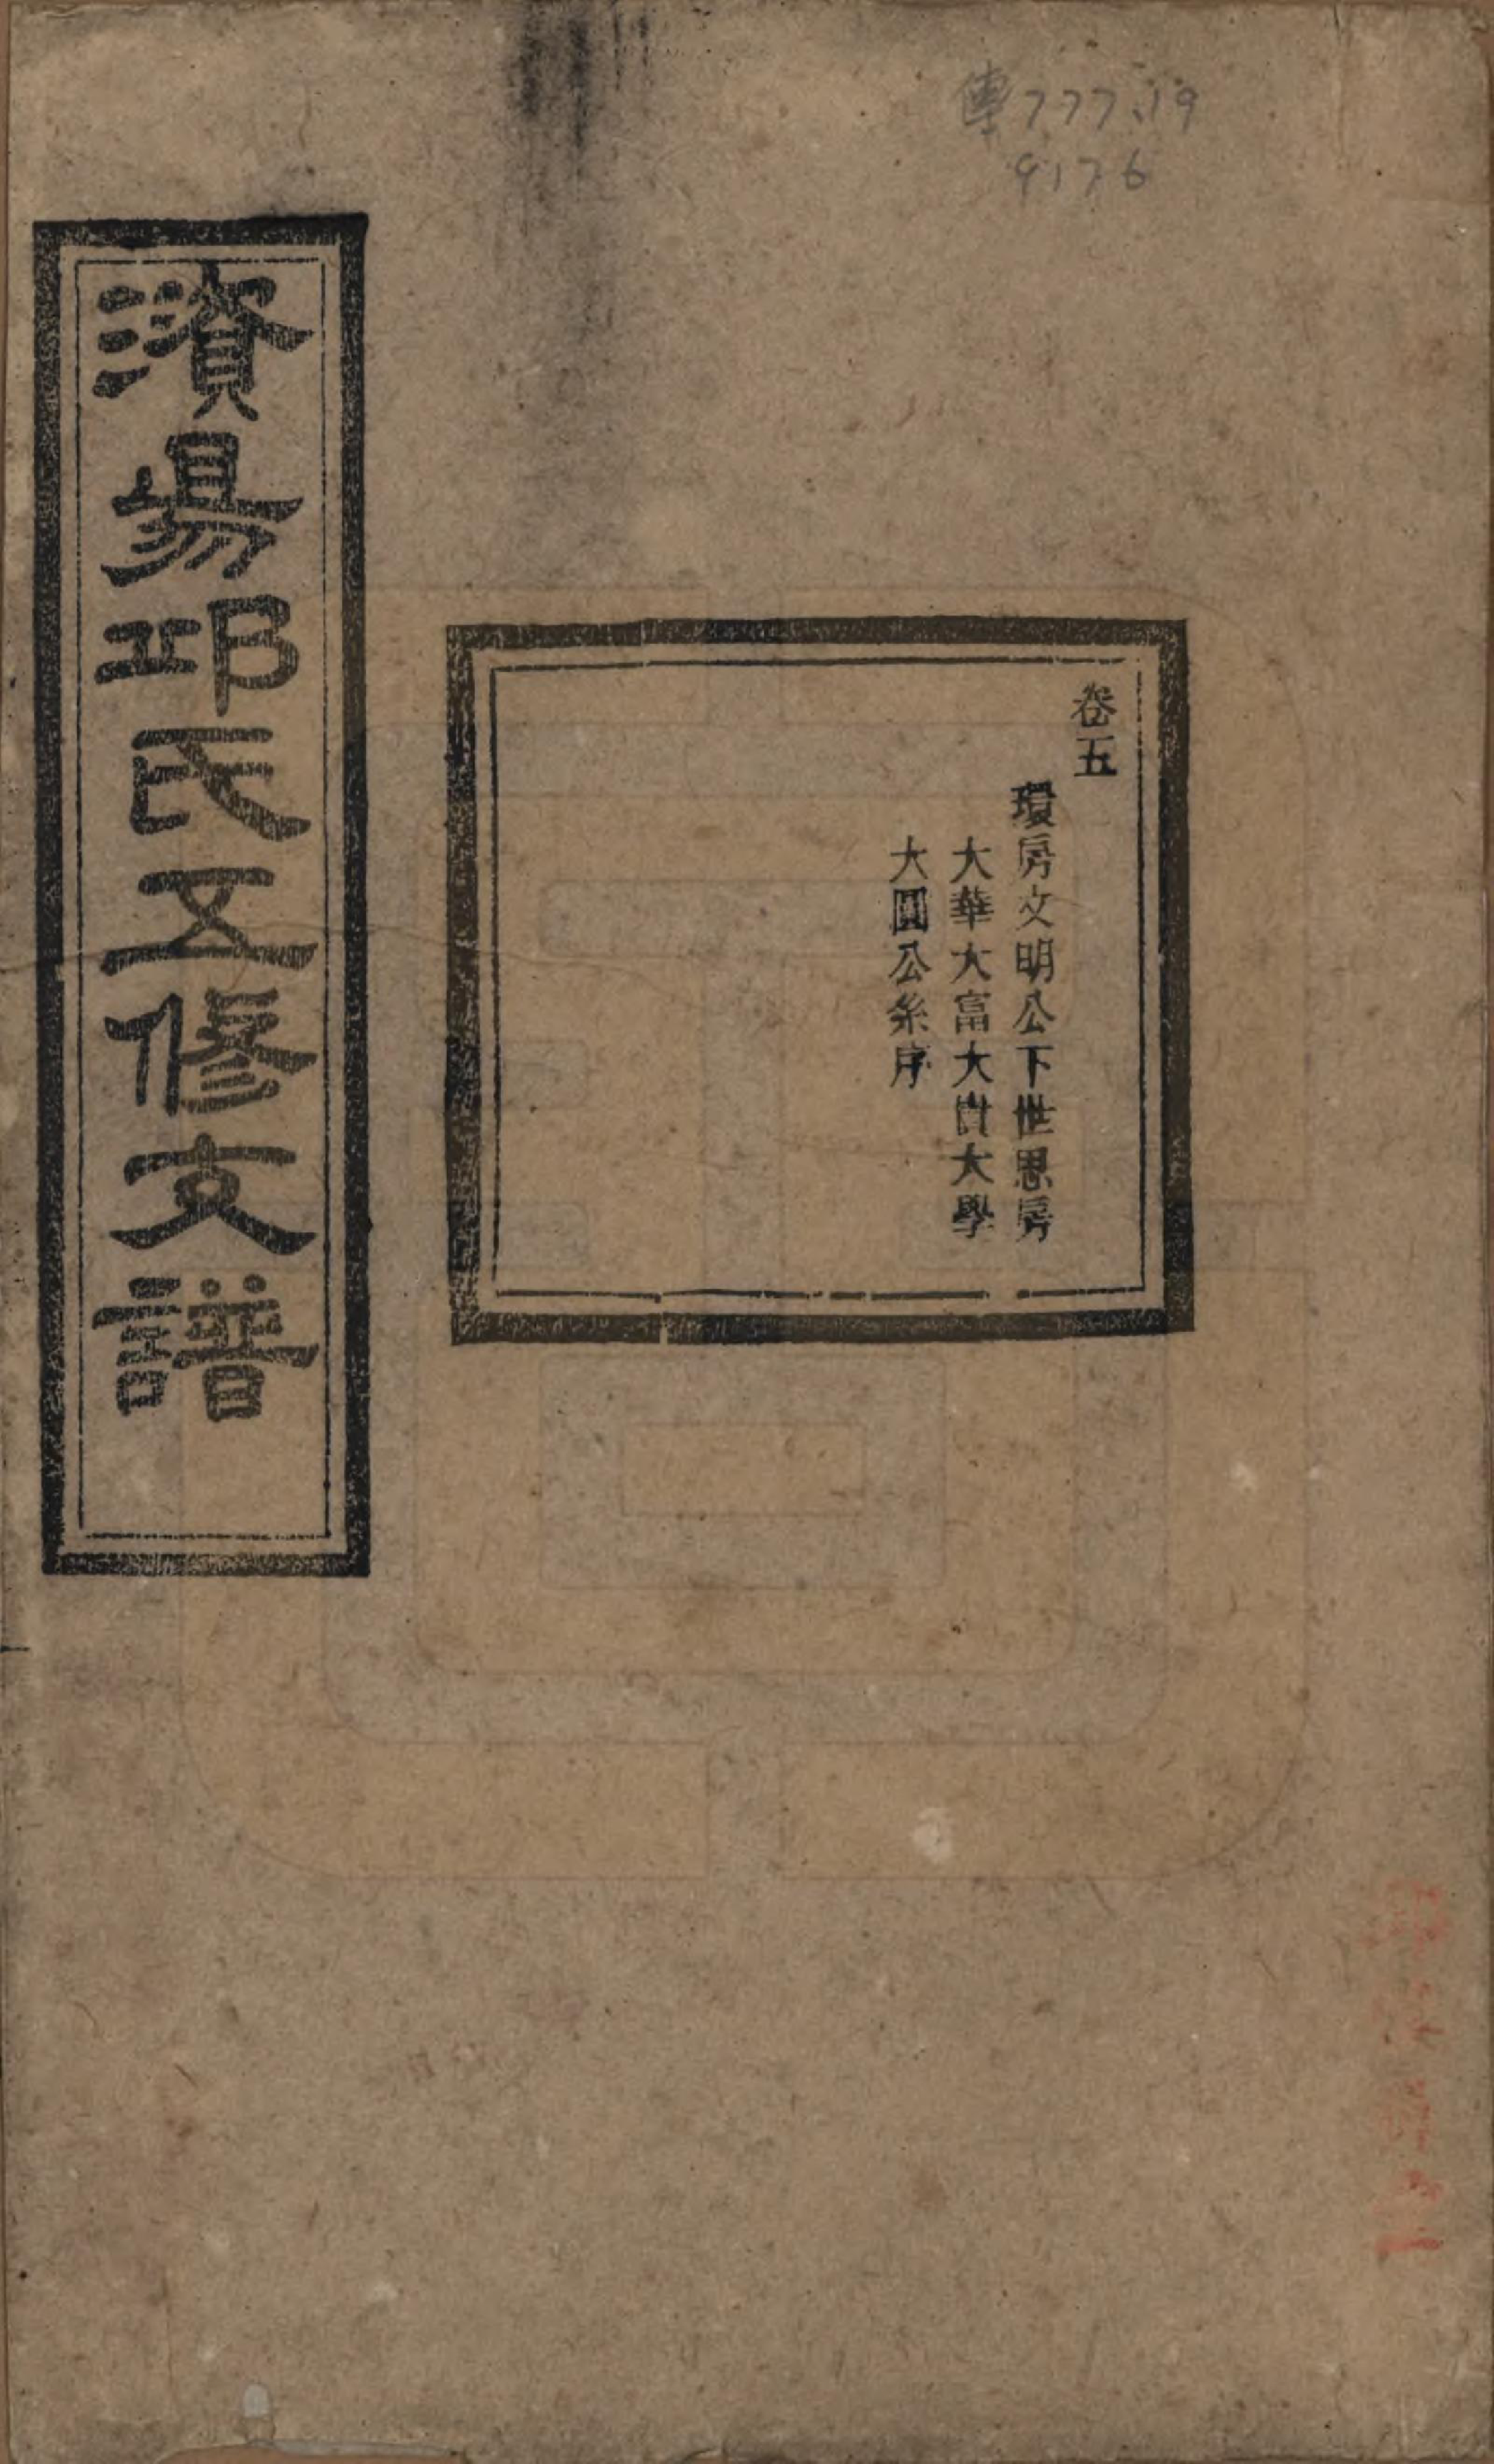 傳777.19
9176
卷五
環房文明公下世思房
大華大富大貴大學
大圓公系序
澬昜邱氏五修支譜